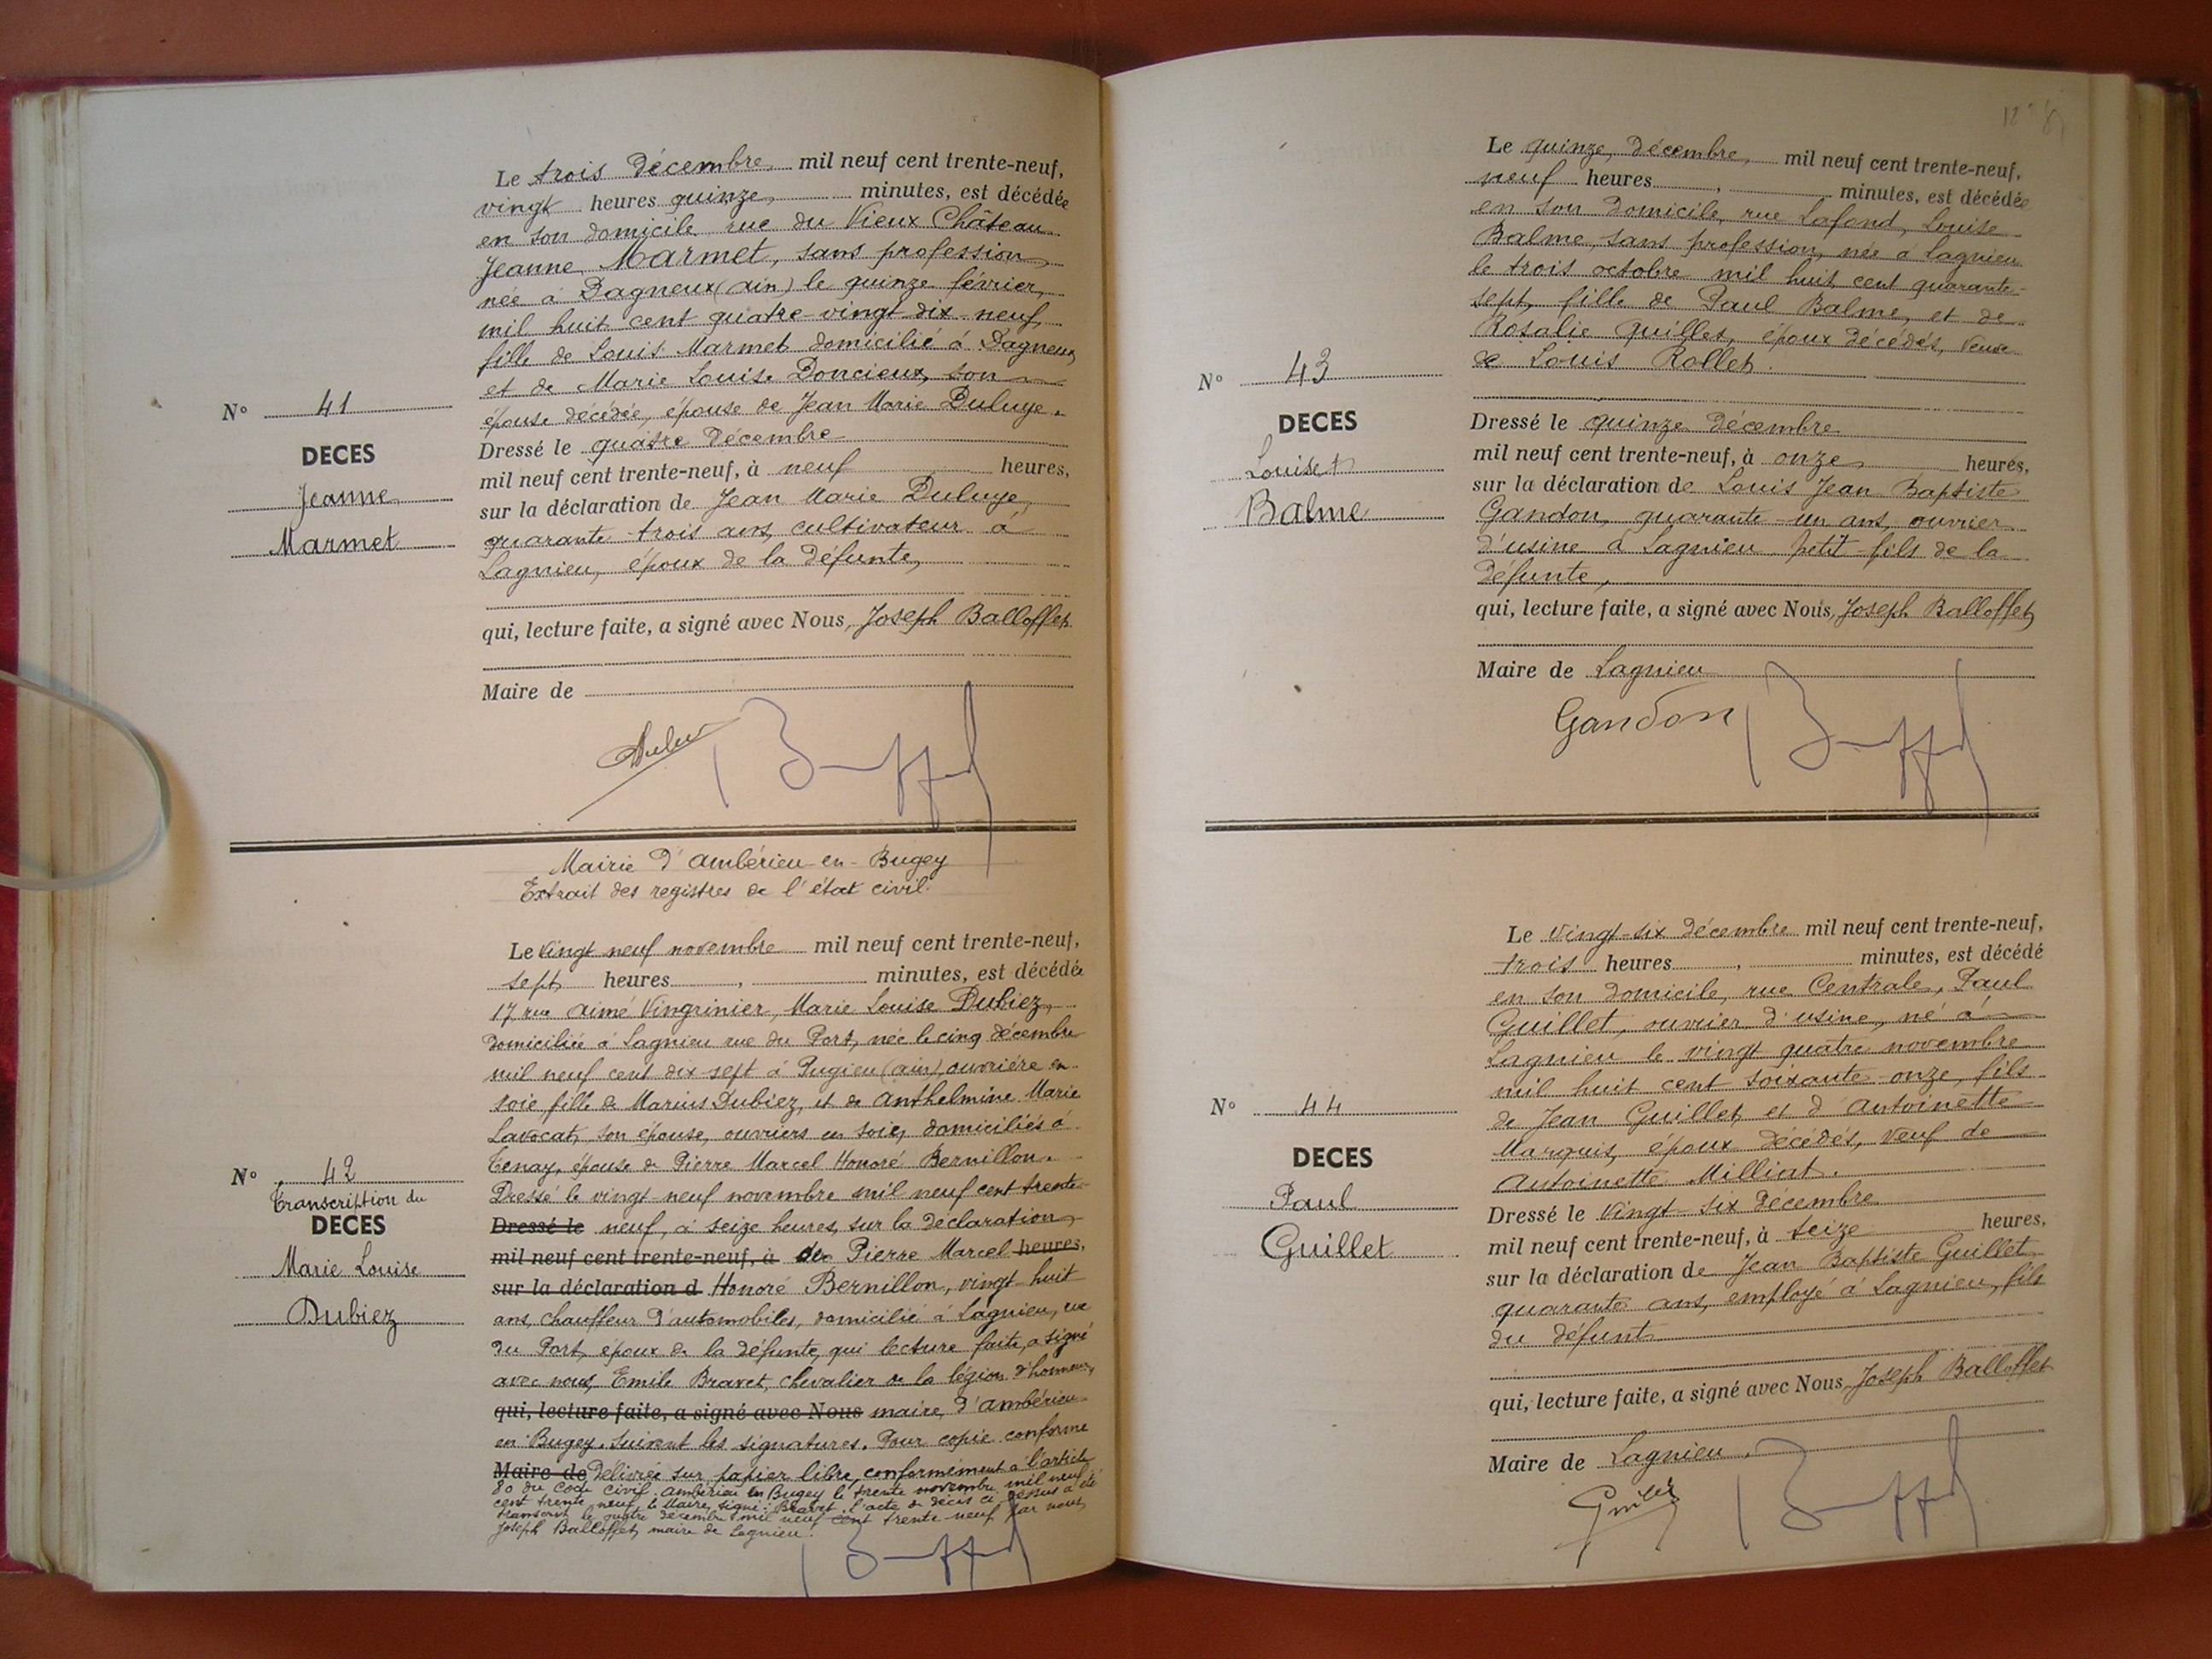 Le trois Décembre mil neuf cent trente-neuf,
vingt heures quinze minutes, est décédée
en son domicile rue du Vieux Château
Jeanne Marmet, sans profession
née à Dagneux (ain) le quinze février
mil huit cent quatre-vingt dix-neuf
fille de Louis Marmet domicilié à Dagneux
et de Marie Louise Doncieux, son
épouse décédée, épouse de Jean Marie Duluye.
N° 41
DECES
Jeanne
Marmet
Dressé le quatre Décembre
mil neuf cent trente-neuf, à neuf heures,
sur la déclaration de Jean Marie Duluye,
quarante trois ans, cultivateur à
Lagnieu, époux de la défunte,
qui, lecture faite, a signé avec Nous, Joseph Balloffet
Maire de
Mairie d'ambérieu-en-Bugey
Extrait des registres de l'état civil.
Le vingt neuf novembre mil neuf cent trente-neuf,
sept heures, minutes, est décédée
17, rue aimé Vingrinier, Marie Louise Dubiez,
domiciliée à Lagnieu rue du Port, née le cinq décembre
mil neuf cent dix-sept à Pugieu (ain), ouvrière en
soie, fille de Marius Dubiez, et de anthelmine Marie
Lavocat, son épouse, ouvriers en soie, domiciliés à
Tenay, épouse de Pierre Marcel Honoré Bernillon.
N° 42
Transcription du
DECES
Marie Louise
Dubiez
Dressé le vingt-neuf novembre mil neuf cent trente-
Dressé le neuf, à seize heures, sur la déclaration
mil neuf cent trente-neuf, à de Pierre Marcel heures,
sur la déclaration d Honoré Bernillon, vingt-huit
ans, chauffeur d'automobiles, domicilié à Lagnieu, rue
du Port, époux de la défunte, qui lecture faite, a signé
avec nous, Emile Bravet, chevalier de la légion d'honneur,
qui, lecture faite, a signé avec Nous maire, d'ambérieu
en Bugey. Suivent les signatures. Pour copie conforme
Maire de Délivrée sur papier libre, conformément à l'article
80 du code civil. ambérieu en Bugey le trente novembre mil neuf
cent trente neuf, le Maire, signé: Bravet. l'acte de décès ci dessus a été
transcrit le quatre décembre mil neuf cent trente neuf par nous
Joseph Balloffet, maire de Lagnieu.
Le quinze Décembre, mil neuf cent trente-neuf,
neuf heures, minutes, est décédée
en son domicile, rue Lafond, Louise
Balme, sans profession, née à Lagnieu
le trois octobre mil huit cent quarante-
sept, fille de Paul Balme, et de
Rosalie Quilles, époux décédés, veuve
de Louis Rollet.
N° 43
DECES
Louise
Balme
Dressé le quinze Décembre
mil neuf cent trente-neuf, à onze heures,
sur la déclaration de Louis Jean Baptiste
Gandon, quarante-un ans, ouvrier
d'usine à Lagnieu petit-fils de la
Défunte,
qui, lecture faite, a signé avec Nous, Joseph Balloffet
Maire de Lagnieu
Gandon
Le vingt-six décembre mil neuf cent trente-neuf,
trois heures, minutes, est décédé
en son domicile, rue Centrale, Paul
Guillet, ouvrier d'usine, né à
Lagnieu le vingt quatre novembre
mil huit cent soixante-onze, fils
de Jean Guillet, et d'antoinette
Marquis, époux décédés, veuf de
antoinette Milliat.
N° 44
DECES
Paul
Guillet
Dressé le vingt-six Décembre
mil neuf cent trente-neuf, à seize heures,
sur la déclaration de Jean Baptiste Guillet
quarante ans, employé à Lagnieu, fils
du défunt
qui, lecture faite, a signé avec Nous, Joseph Balloffet
Maire de Lagnieu.